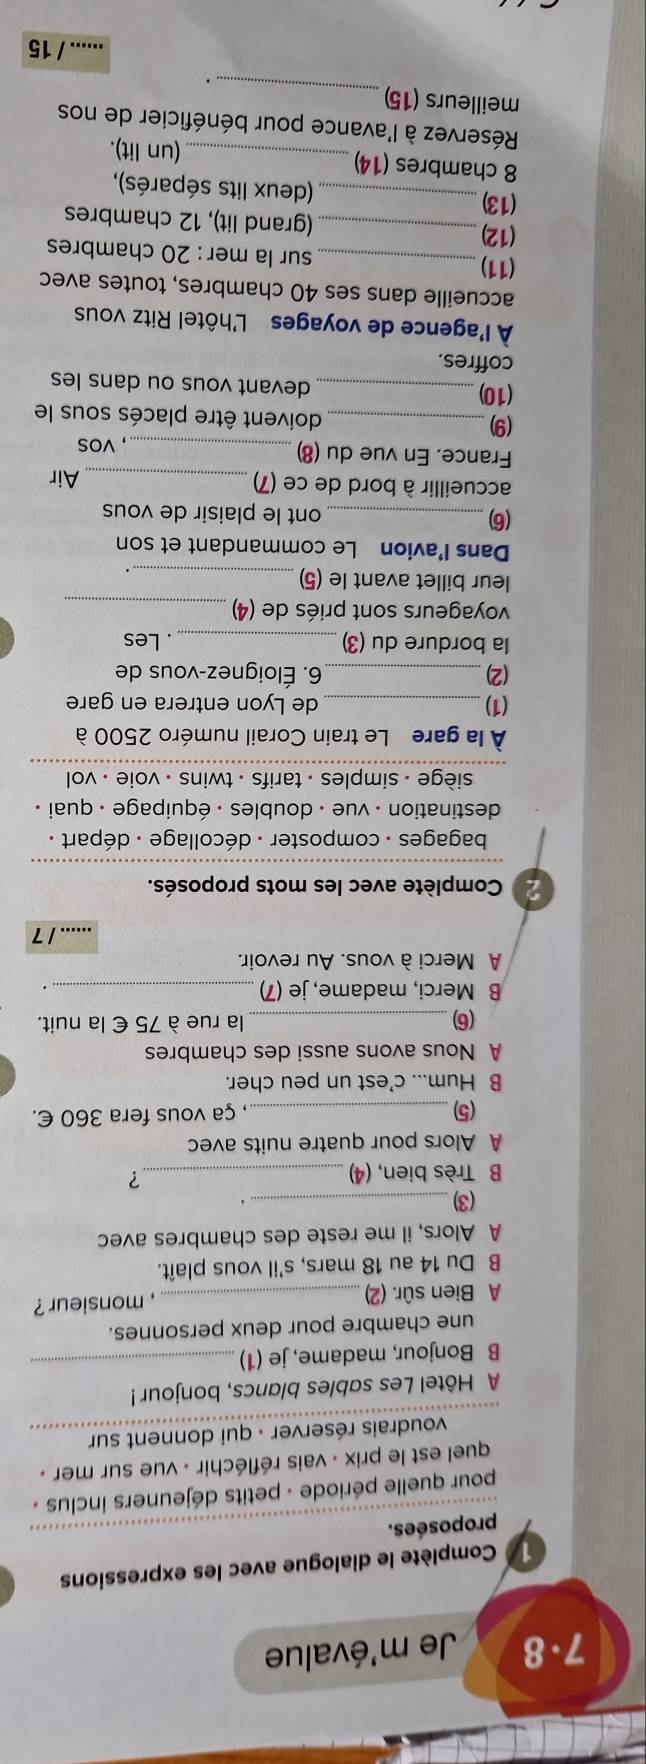 7·8 Je m'évalue
1 Complète le dialogue avec les expressions
proposées.
pour quelle période · petits déjeuners inclus ·
quel est le prix · vais réfléchir · vue sur mer ·
voudrais réserver · qui donnent sur
A Hôtel Les sables blancs, bonjour !
B Bonjour, madame, je (1)
une chambre pour deux personnes.
A Bien sûr. (2) , monsieur ?
B Du 14 au 18 mars, s'il vous plaît.
A Alors, il me reste des chambres avec
(3) .
B Très bien, (4) ?
A Alors pour quatre nuits avec
(5) , ça vous fera 360 €.
B Hum... c'est un peu cher.
A Nous avons aussi des chambres
(6) la rue à 75 € la nuit.
B Merci, madame, je (7) .
A Merci à vous. Au revoir.
...... / 7
2 Complète avec les mots proposés.
bagages · composter · décollage · départ ·
destination · vue · doubles · équipage · quai ·
siège · simples · tarifs · twins · voie · vol
À la gare Le train Corail numéro 2500 à
(1) de Lyon entrera en gare
(2) 6. Éloignez-vous de
la bordure du (3) . Les
voyageurs sont priés de (4)
leur billet avant le (5) .
Dans l'avion Le commandant et son
(6) ont le plaisir de vous
accueillir à bord de ce (7) Air
France. En vue du (8) , vos
(9) doivent être placés sous le
(10) devant vous ou dans les
coffres.
À l'agence de voyages L'hôtel Ritz vous
accueille dans ses 40 chambres, toutes avec
(11) sur la mer : 20 chambres
(12) (grand lit), 12 chambres
(13) (deux lits séparés),
8 chambres (14) (un lit).
Réservez à l'avance pour bénéficier de nos
meilleurs (15) .
...... / 15